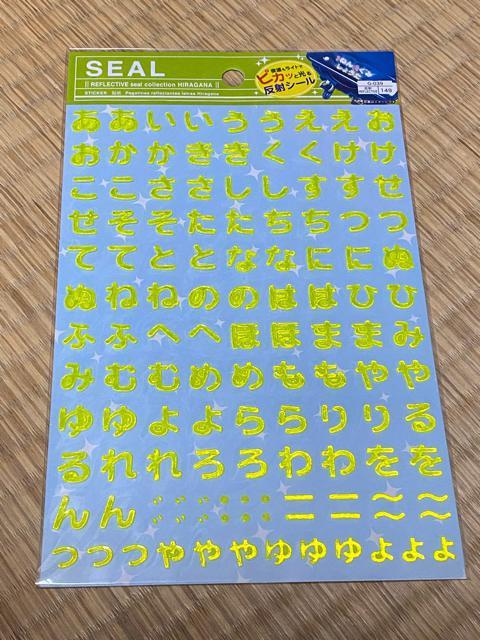 SEAL
|| REFLECTIVE seal collection HIRAGANA ||
STICKER 貼紙 Pegatinas reflectantes letras Hiragana
夜道もライトで
ピカッと光る
反射シール
G-039
REFLECTIVE
149
ああいいううええお
おかかききくくけけ
ここささししすすせ
せそそたたちちつつ
ててととななににぬ
ぬねねののははひひ
ふふへへほほままみ
みむむめめももやや
ゆゆよよららりりる
るれれろろわわをを
んん゛゛゜゜ーー～～
っっっゃゃゃゅゅゅょょょ